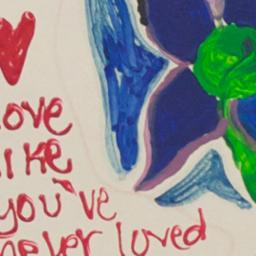 love
like
you've
never loved